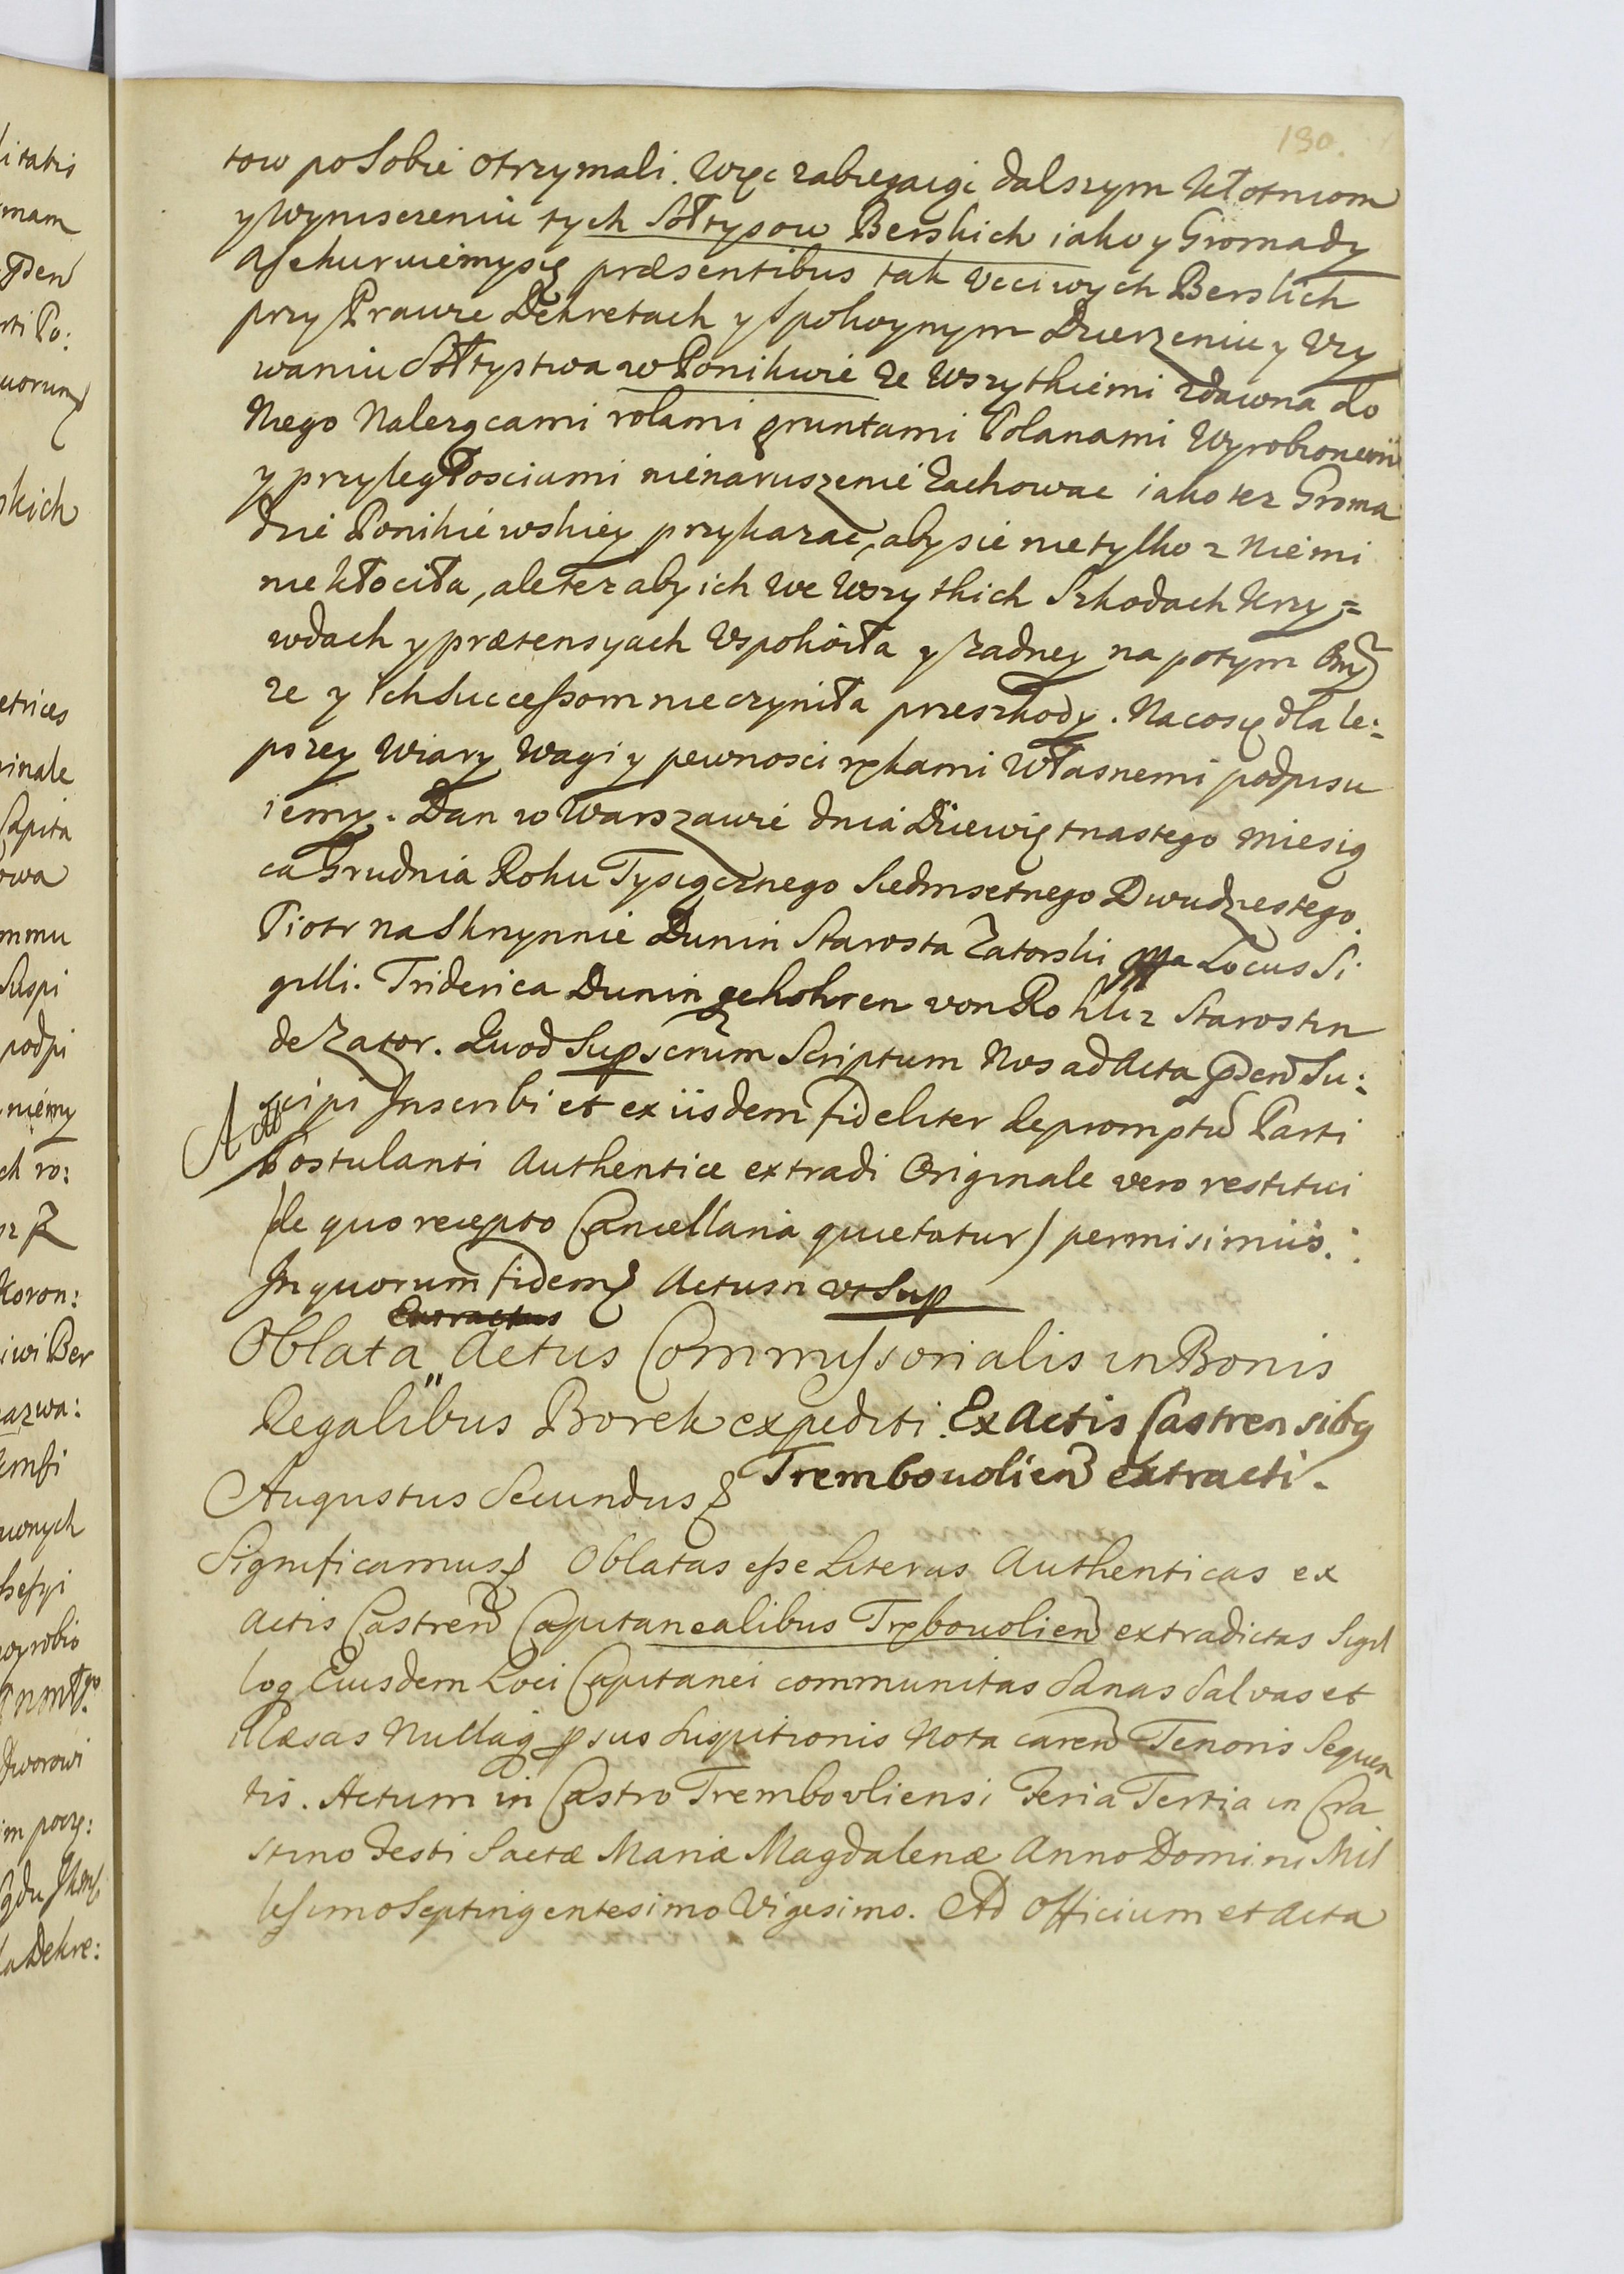 190.
tow po Sobie otrzymali. Więc zabiegaiąc dalszym kłotniom
y wyniszczeniu tych Sołtysow Berskich iako y Gromady
assekuruiemy się præsentibus tak Uczciwych Berskich
przy Prawie Dekretach y spokoynym Dzierzeniu y Uzy
waniu Sołtystwa w Ponikwie ze wszytkiemi zdawna do
Niego Nalezącami rolami gruntami Polanami Wyrobionemi
y przyległosciami nienaruszenie Zachowac iako tez Groma
dzie Ponikiewskiey przykazac, aby sie nietylko z niemi
niekłociła, ale tez aby ich we wszytkich Szkodach krzy=
wdach y prætensyach Uspokoiła y zadney na potym
ze y Ich Successorom nieczyniła przeszkody. Na co się dla le:
pszey Wiary Wagi y pewnosci rękami Własnemi podpisu
iemy. Dan w Warszawie dnia Dziewiętnastego miesią
ca Grudnia Roku Tysiącznego Siedmsetnego Dwudziestego.
Piotr na Skrzynnie Dunin Starosta Zatorski mpa Locus Si
gilli. Friderica Dunin gebohren von Starostin
de Zator. Quod Supscrum Scriptum Nos ad Acta pden Su:
scipi Inscribi et ex iisdem fideliter depromptu Parti
Postulanti Authentice extradi Originale vero restitui
(de quo recepto Cancellaria quietatur) permisimus.
In quorum fidem Actum ut Sup
Extractus
Oblata Actus Commissorialis in Bonis
Regalibus Borek expediti. Ex Actis Castrensibq
Trembouolien extracti.
Augustus Secundus
Significamus Oblatas esse Literas Authenticas ex
Actis Castren Capitanealibus Trębouolien extradictas Sigil
loq Eiusdem Loci Capitanei communitas Sanas Salvas et
illæsas Nullaq psus Suspitionis Nota caren Tenoris Sequen
tis. Actum in Castro Trembovliensi Feria Tertia in Cra
stino Festi Sactæ Mariæ Magdalenæ Anno Domini Mil
lesimo Septingentesimo Vigesimo. Ad Officium et Acta